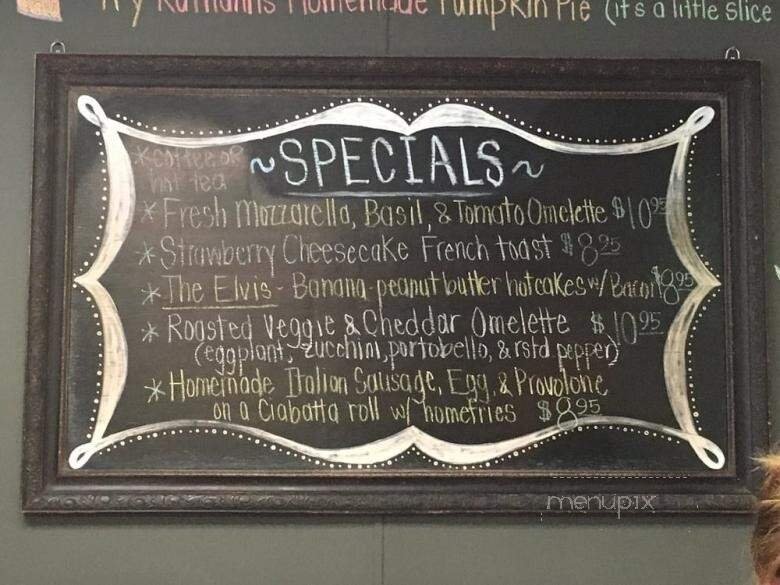 Try Ruthann's Homemade Pumpkin Pie (it's a little slice
~SPECIALS~
*coffee or
hot tea
*Fresh Mozzarella, Basil, & Tomato Omelette $10 95
*Strawberry Cheesecake French toast $8.25
*The Elvis - Banana-peanut butter hotcakes w/ Bacon $8.95
*Roasted Veggie & Cheddar Omelette $10.95
(eggplant, zucchini, portobello, & rstd pepper)
*Homemade Italian Sausage, Egg, & Provolone
on a Ciabatta roll w/ homefries $8.95
menupix